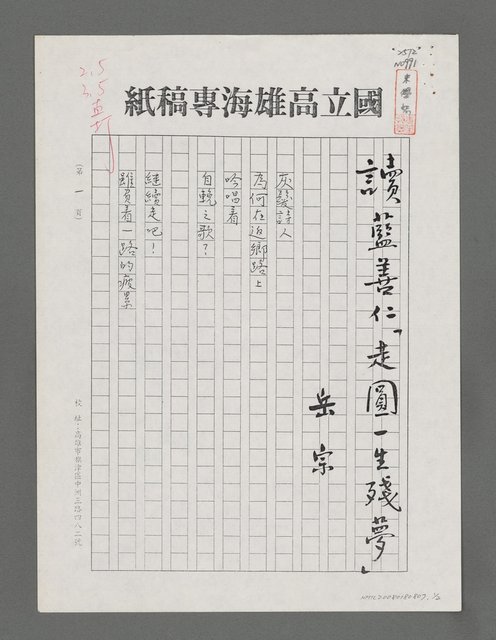 "25/2"
NO991
國立高雄海專稿紙
2.5
3.5
讀藍善仁「走圓一生殘夢」
岳宗
灰髮詩人
為何在返鄉路上
吟唱着
自輓之歌?
繼續走吧!
雖負着一路的疲累
(第1頁)
校址:高雄市旗津區中洲三路四八二號